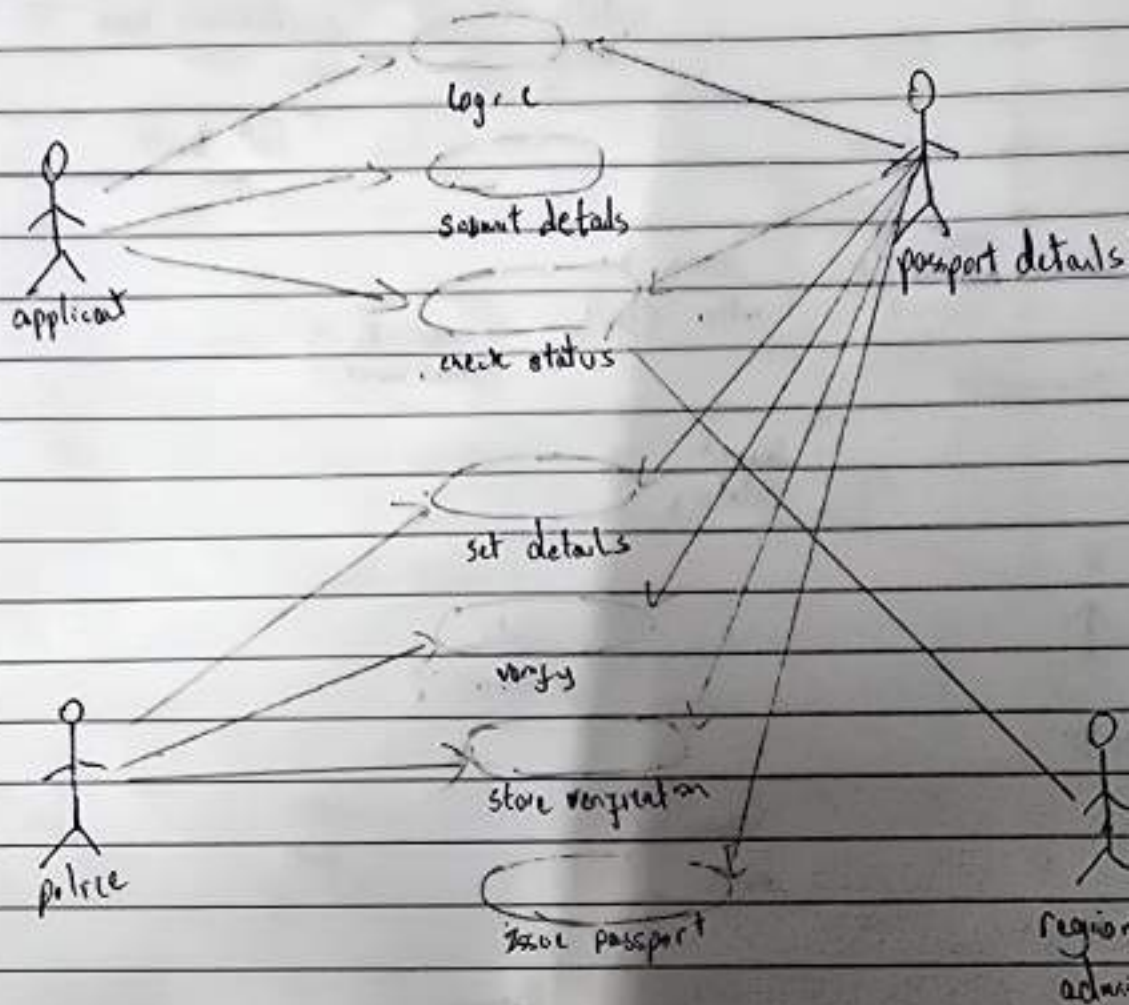 submit details
applicant
passport details
check status
set details
verify
store verification
police
issue passport